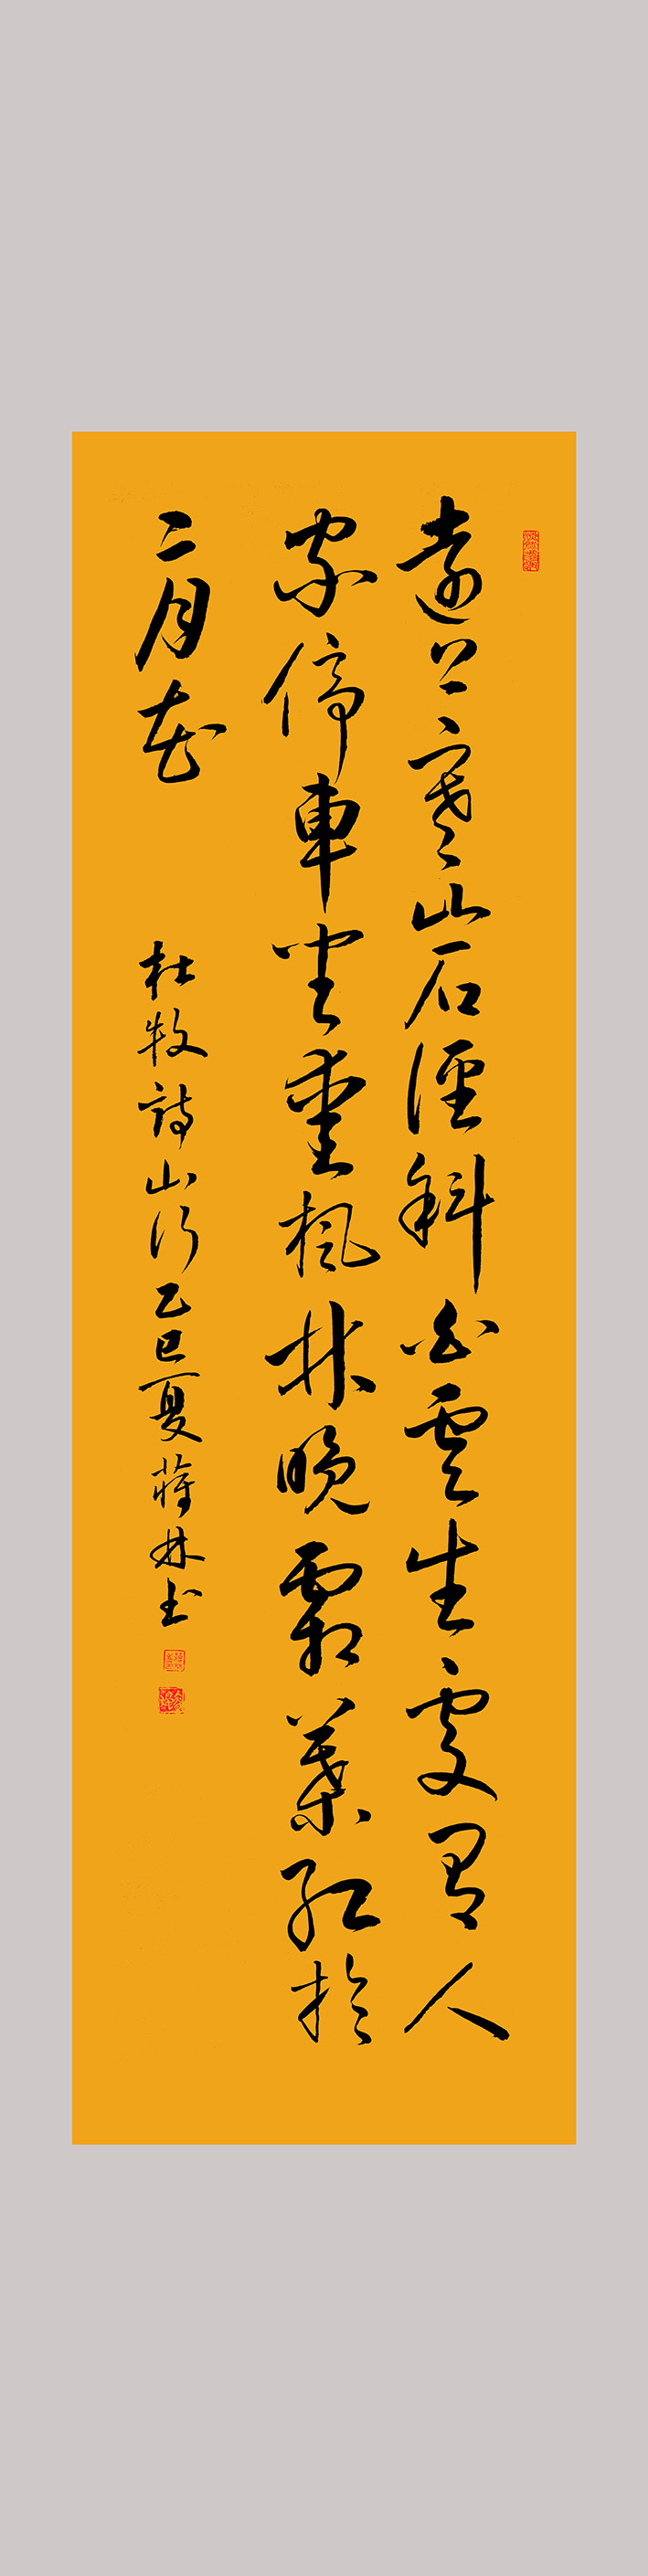 遠上寒山石徑斜白雲生處有人
家停車坐愛楓林晚霜葉紅於
二月花
杜牧詩山行乙巳夏蔣林書